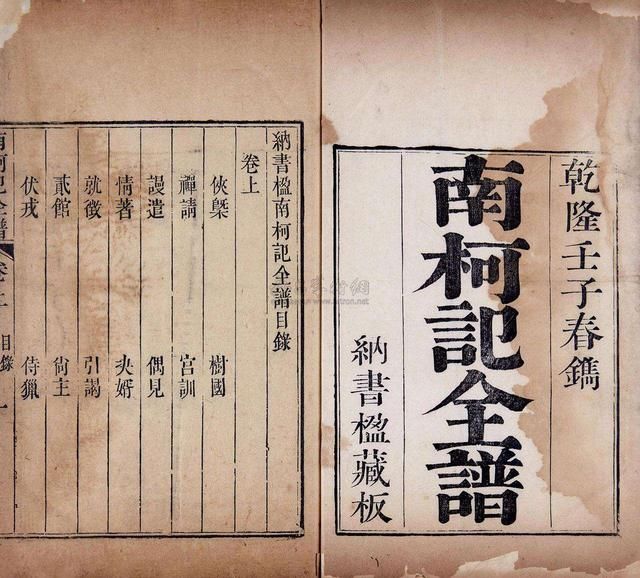 乾隆壬子春鐫
南柯記全譜
納書楹藏板
納書楹南柯記全譜目錄
卷上
俠槩 樹國
禪請 宮訓
謾遣 偶見
情著 決婿
就徵 引謁
貳館 尙主
伏戎 侍獵
南柯記全譜 卷上 目錄 一